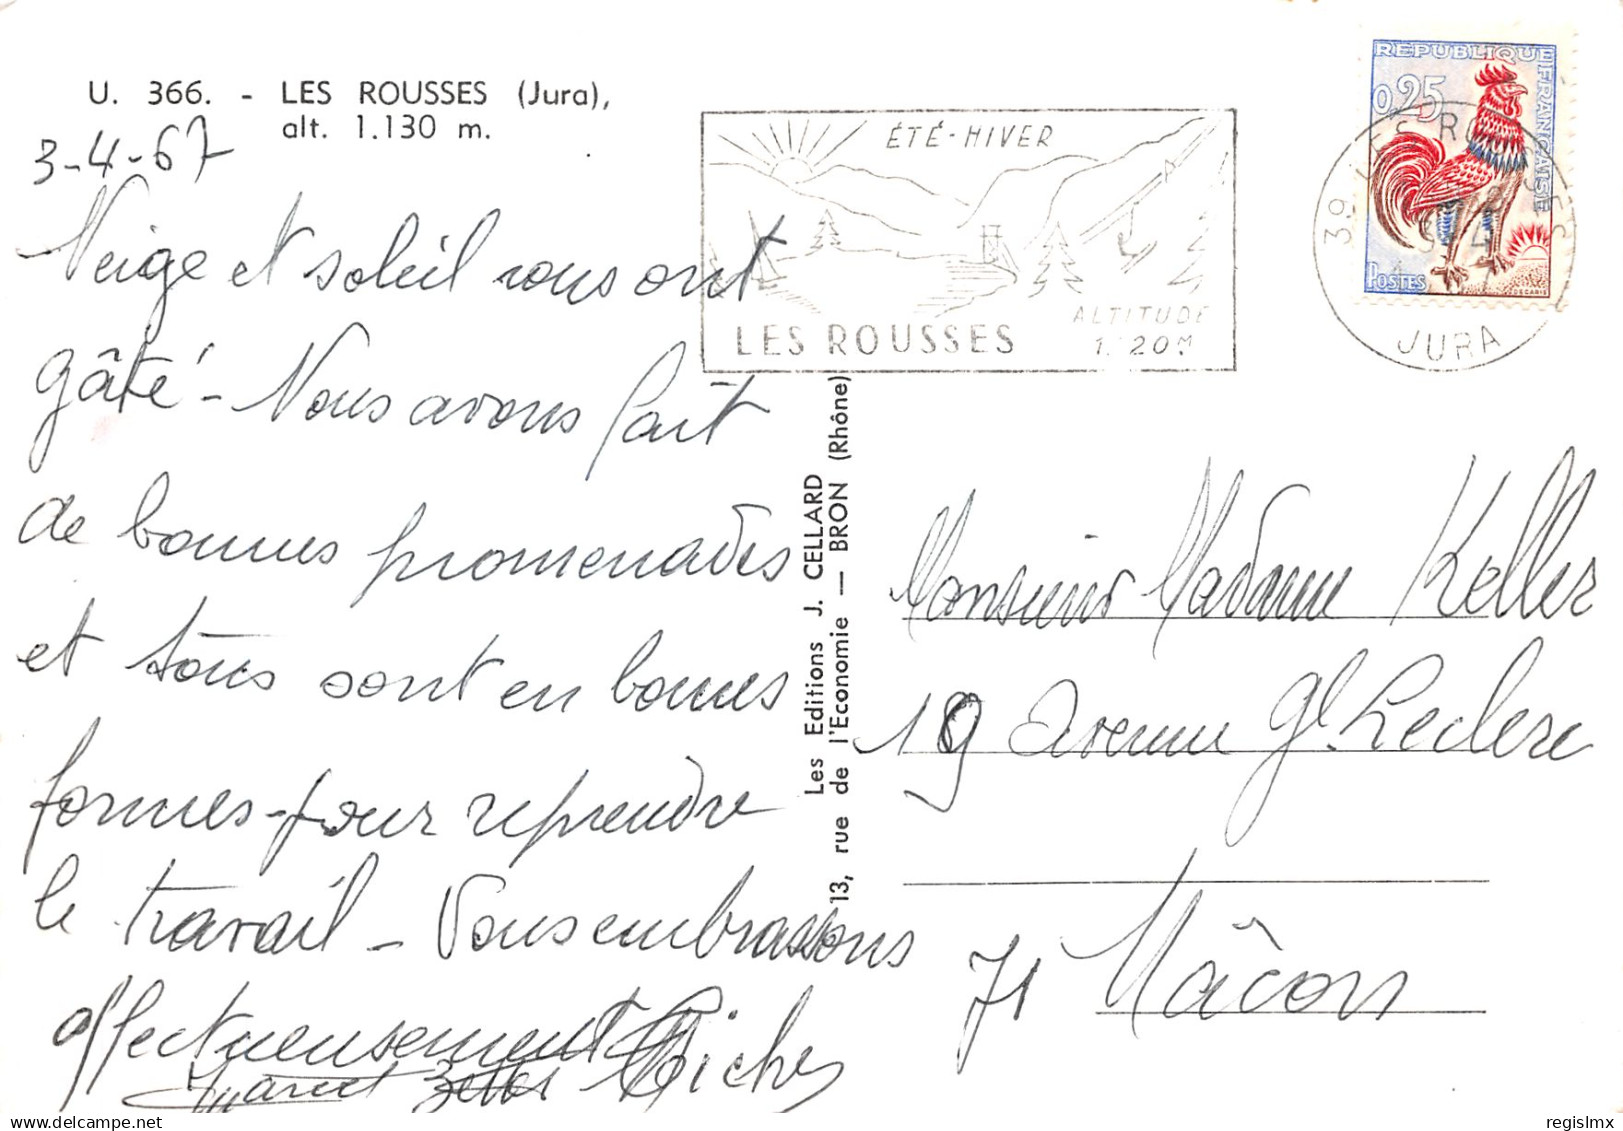 U. 366. - LES ROUSSES (Jura),
alt. 1.130 m.
3-4-67
Neige et soleil nous ont
gâté - Nous avons fait
de bonnes promenades
et tous sont en bonnes
formes - pour reprendre
le travail - Vous embrassons
affectueusement
Marcel
ÉTÉ-HIVER
ALTITUDE
LES ROUSSES
REPUBLIQUE FRANÇAISE
0,25
POSTES
DECARIS
39 LES ROUSSES
JURA
Les Editions J. CELLARD
13, rue de l'Economie — BRON (Rhône)
Monsieur Madame Keller
19 avenue Gl. Leclerc
71 Mâcon
www.delcampe.net
regislmx